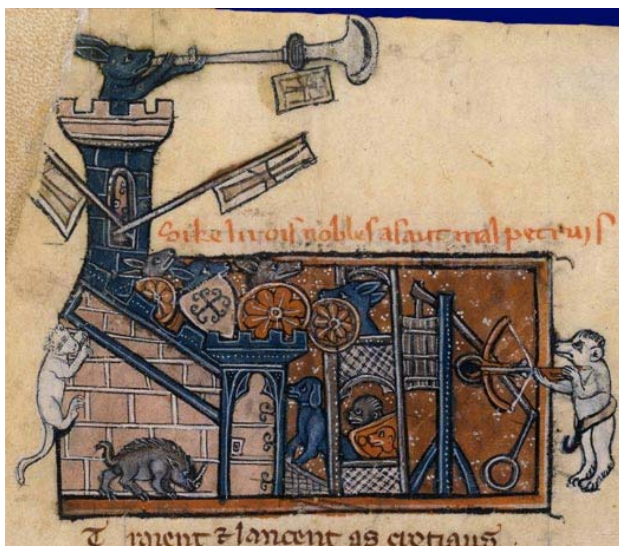 li rois nobles asaut mal petruis
T raient ⁊ lancent as cretiaus